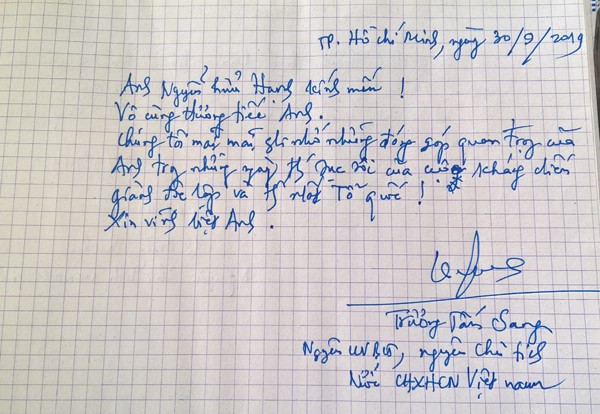 TP. Hồ Chí Minh, ngày 30/9/2019
Anh Nguyễn Hữu Hạnh kính mến !
Vô cùng thương tiếc Anh.
Chúng tôi mãi mãi ghi nhớ những đóng góp quan trọng của
Anh trong những ngày của cuộc kháng chiến
giành độc lập và Tổ quốc !
Xin vĩnh biệt Anh.
Trương Tấn Sang
Nguyên UVBCT, nguyên Chủ tịch
Nước CHXHCN Việt nam